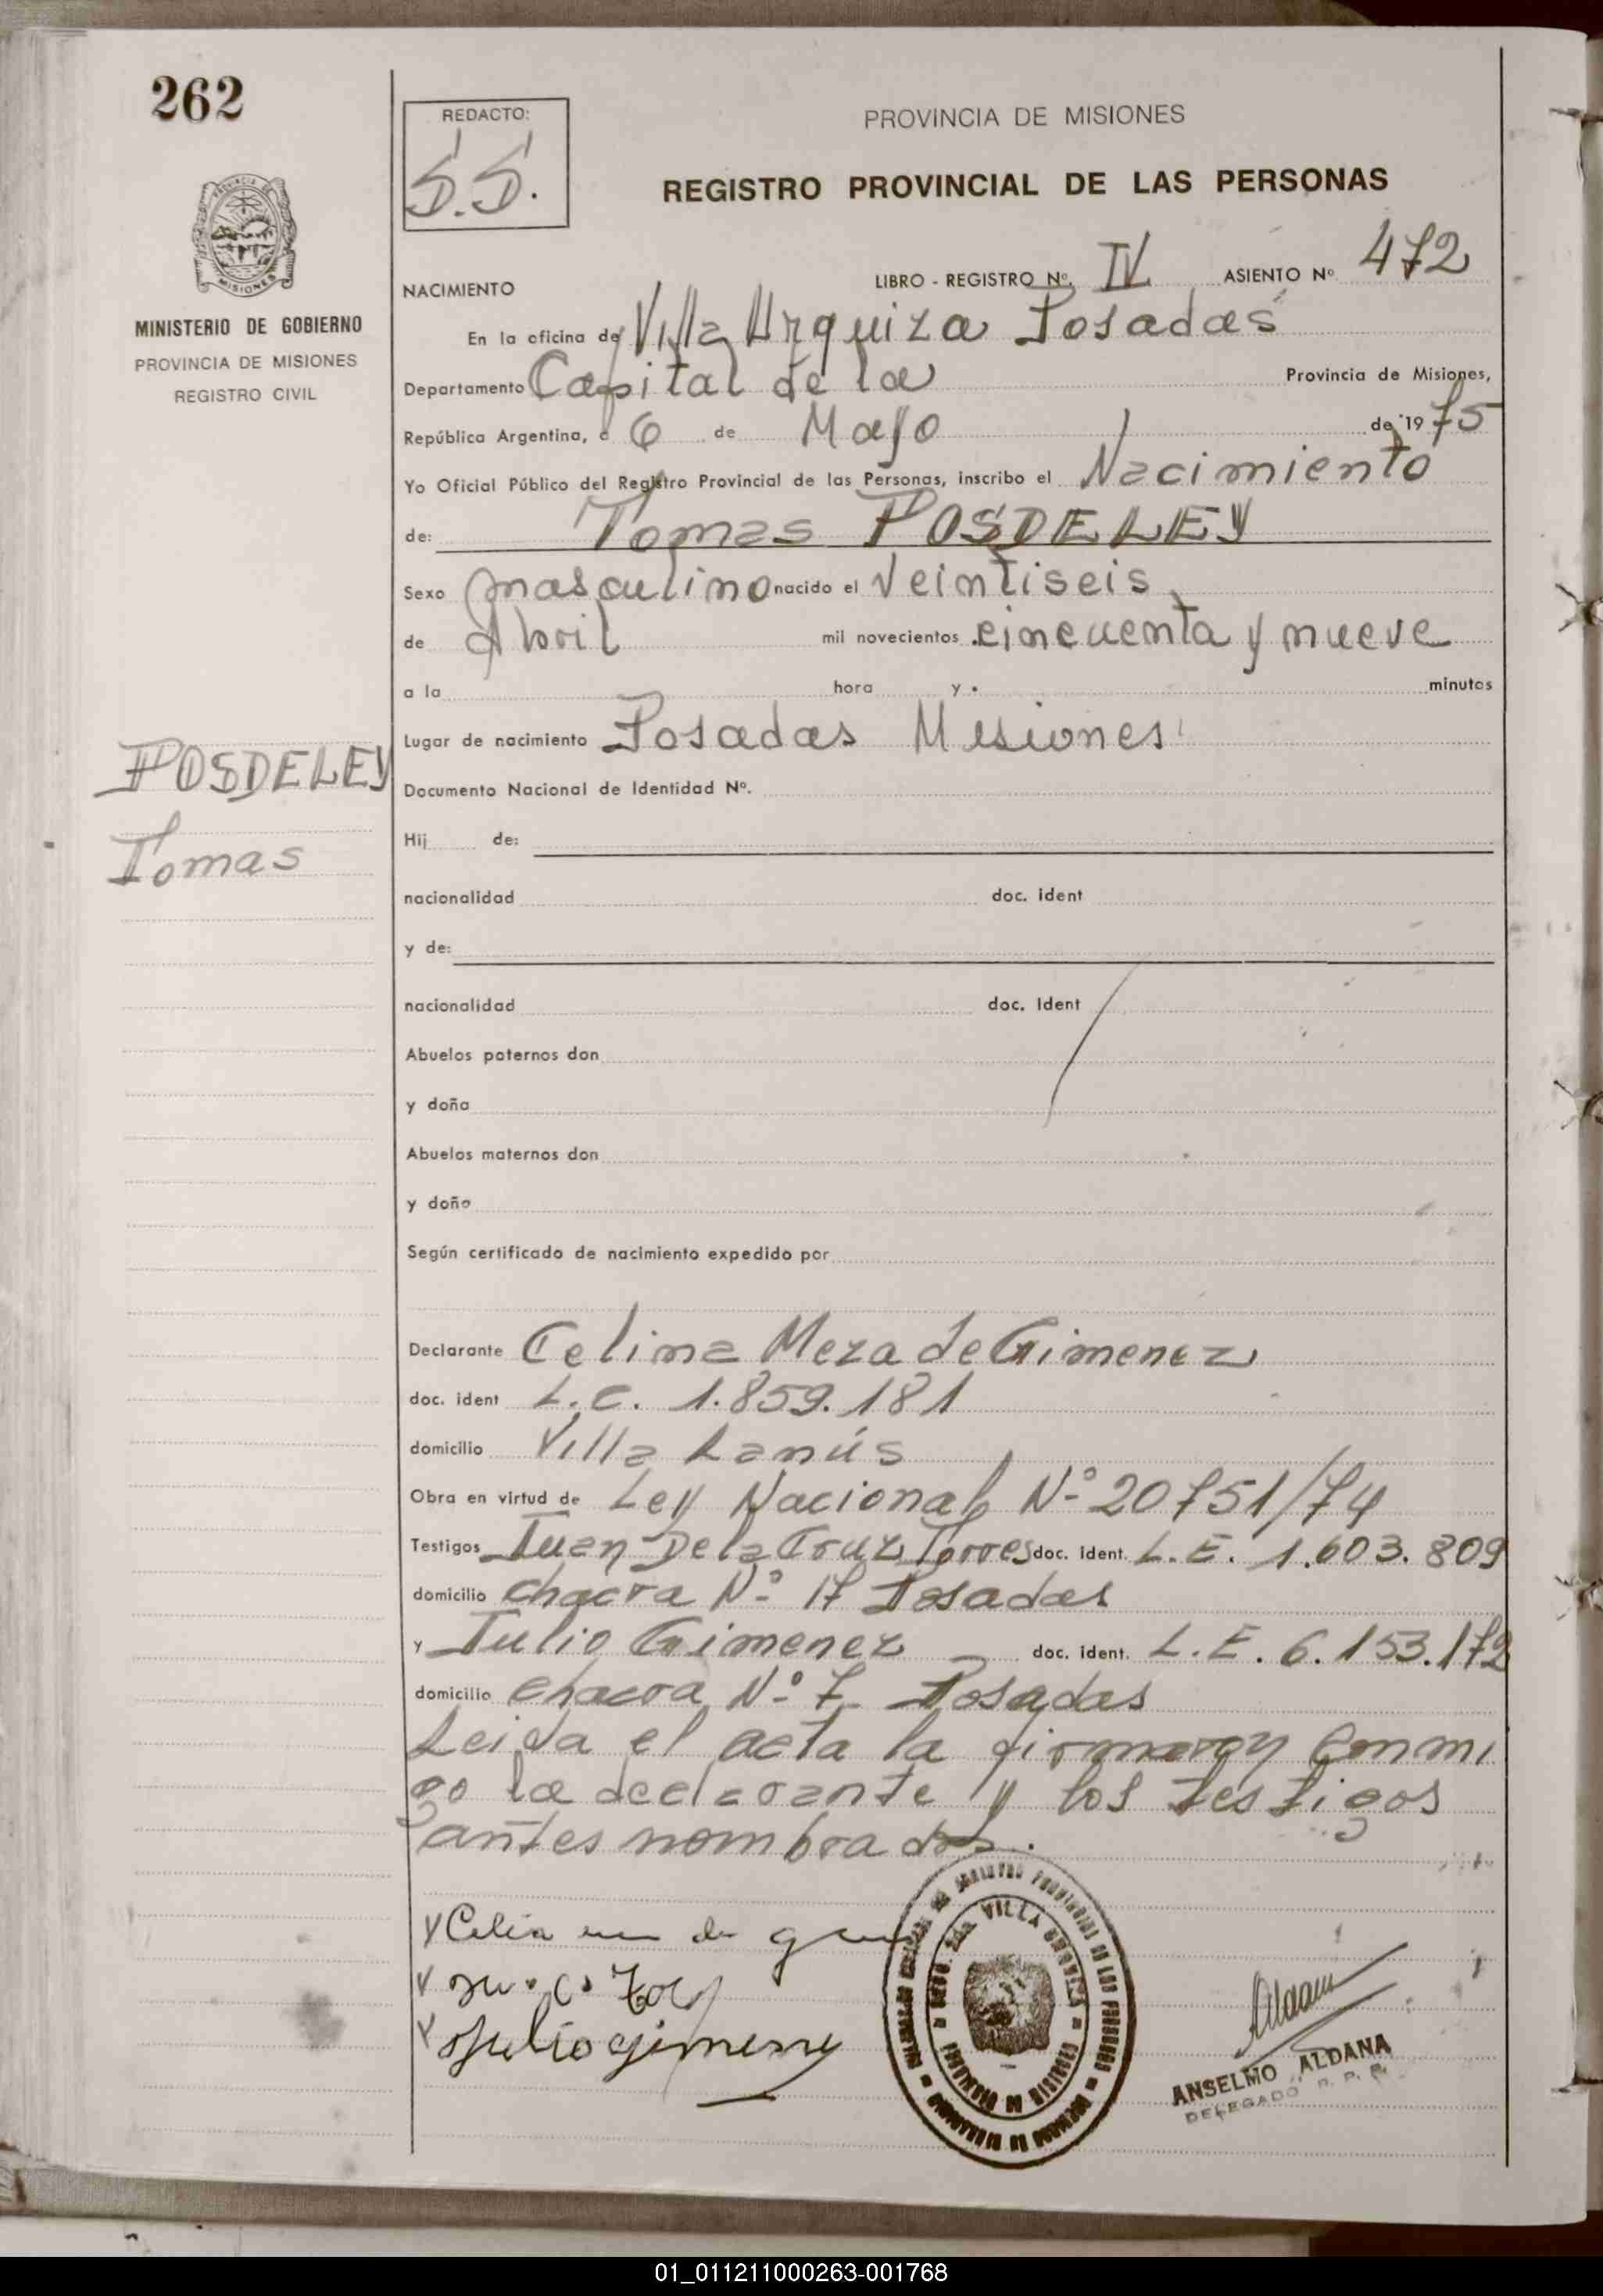 262
REDACTO:
S.S.
PROVINCIA DE MISIONES
REGISTRO PROVINCIAL DE LAS PERSONAS
MISIONES
MINISTERIO DE GOBIERNO
PROVINCIA DE MISIONES
REGISTRO CIVIL
NACIMIENTO LIBRO - REGISTRO Nº. IV ASIENTO Nº 472
En la oficina de Villa Urquiza Posadas
Departamento Capital de la Provincia de Misiones,
República Argentina, a 6 de Mayo de 1975
Yo Oficial Público del Registro Provincial de las Personas, inscribo el Nacimiento
de: Tomas POSDELEY
Sexo masculino nacido el Veintiseis
de Abril mil novecientos cincuenta y nueve
a la hora y minutos
Lugar de nacimiento Posadas Misiones
POSDELEY
Tomas
Documento Nacional de Identidad Nº.
Hij de:
nacionalidad doc. ident
y de:
nacionalidad doc. Ident
Abuelos paternos don
y doña
Abuelos maternos don
y doña
Según certificado de nacimiento expedido por
Declarante Celina Meza de Gimenez
doc. ident L.C. 1.859.181
domicilio Villa Lanús
Obra en virtud de Ley Nacional Nº 20751/74
Testigos Juan De la Cruz Torres doc. ident. L.E. 1.603.809
domicilio chacra Nº 17 Posadas
y Julio Gimenez doc. ident. L.E. 6.153.172
domicilio chacra Nº 7 Posadas
Leida el acta la firmaron conmi
go la declarante y los testigos
antes nombrados.
Celia
Julio gimenez
VILLA URQUIZA
ANSELMO ALDANA
DELEGADO R. P. P.
01_011211000263-001768